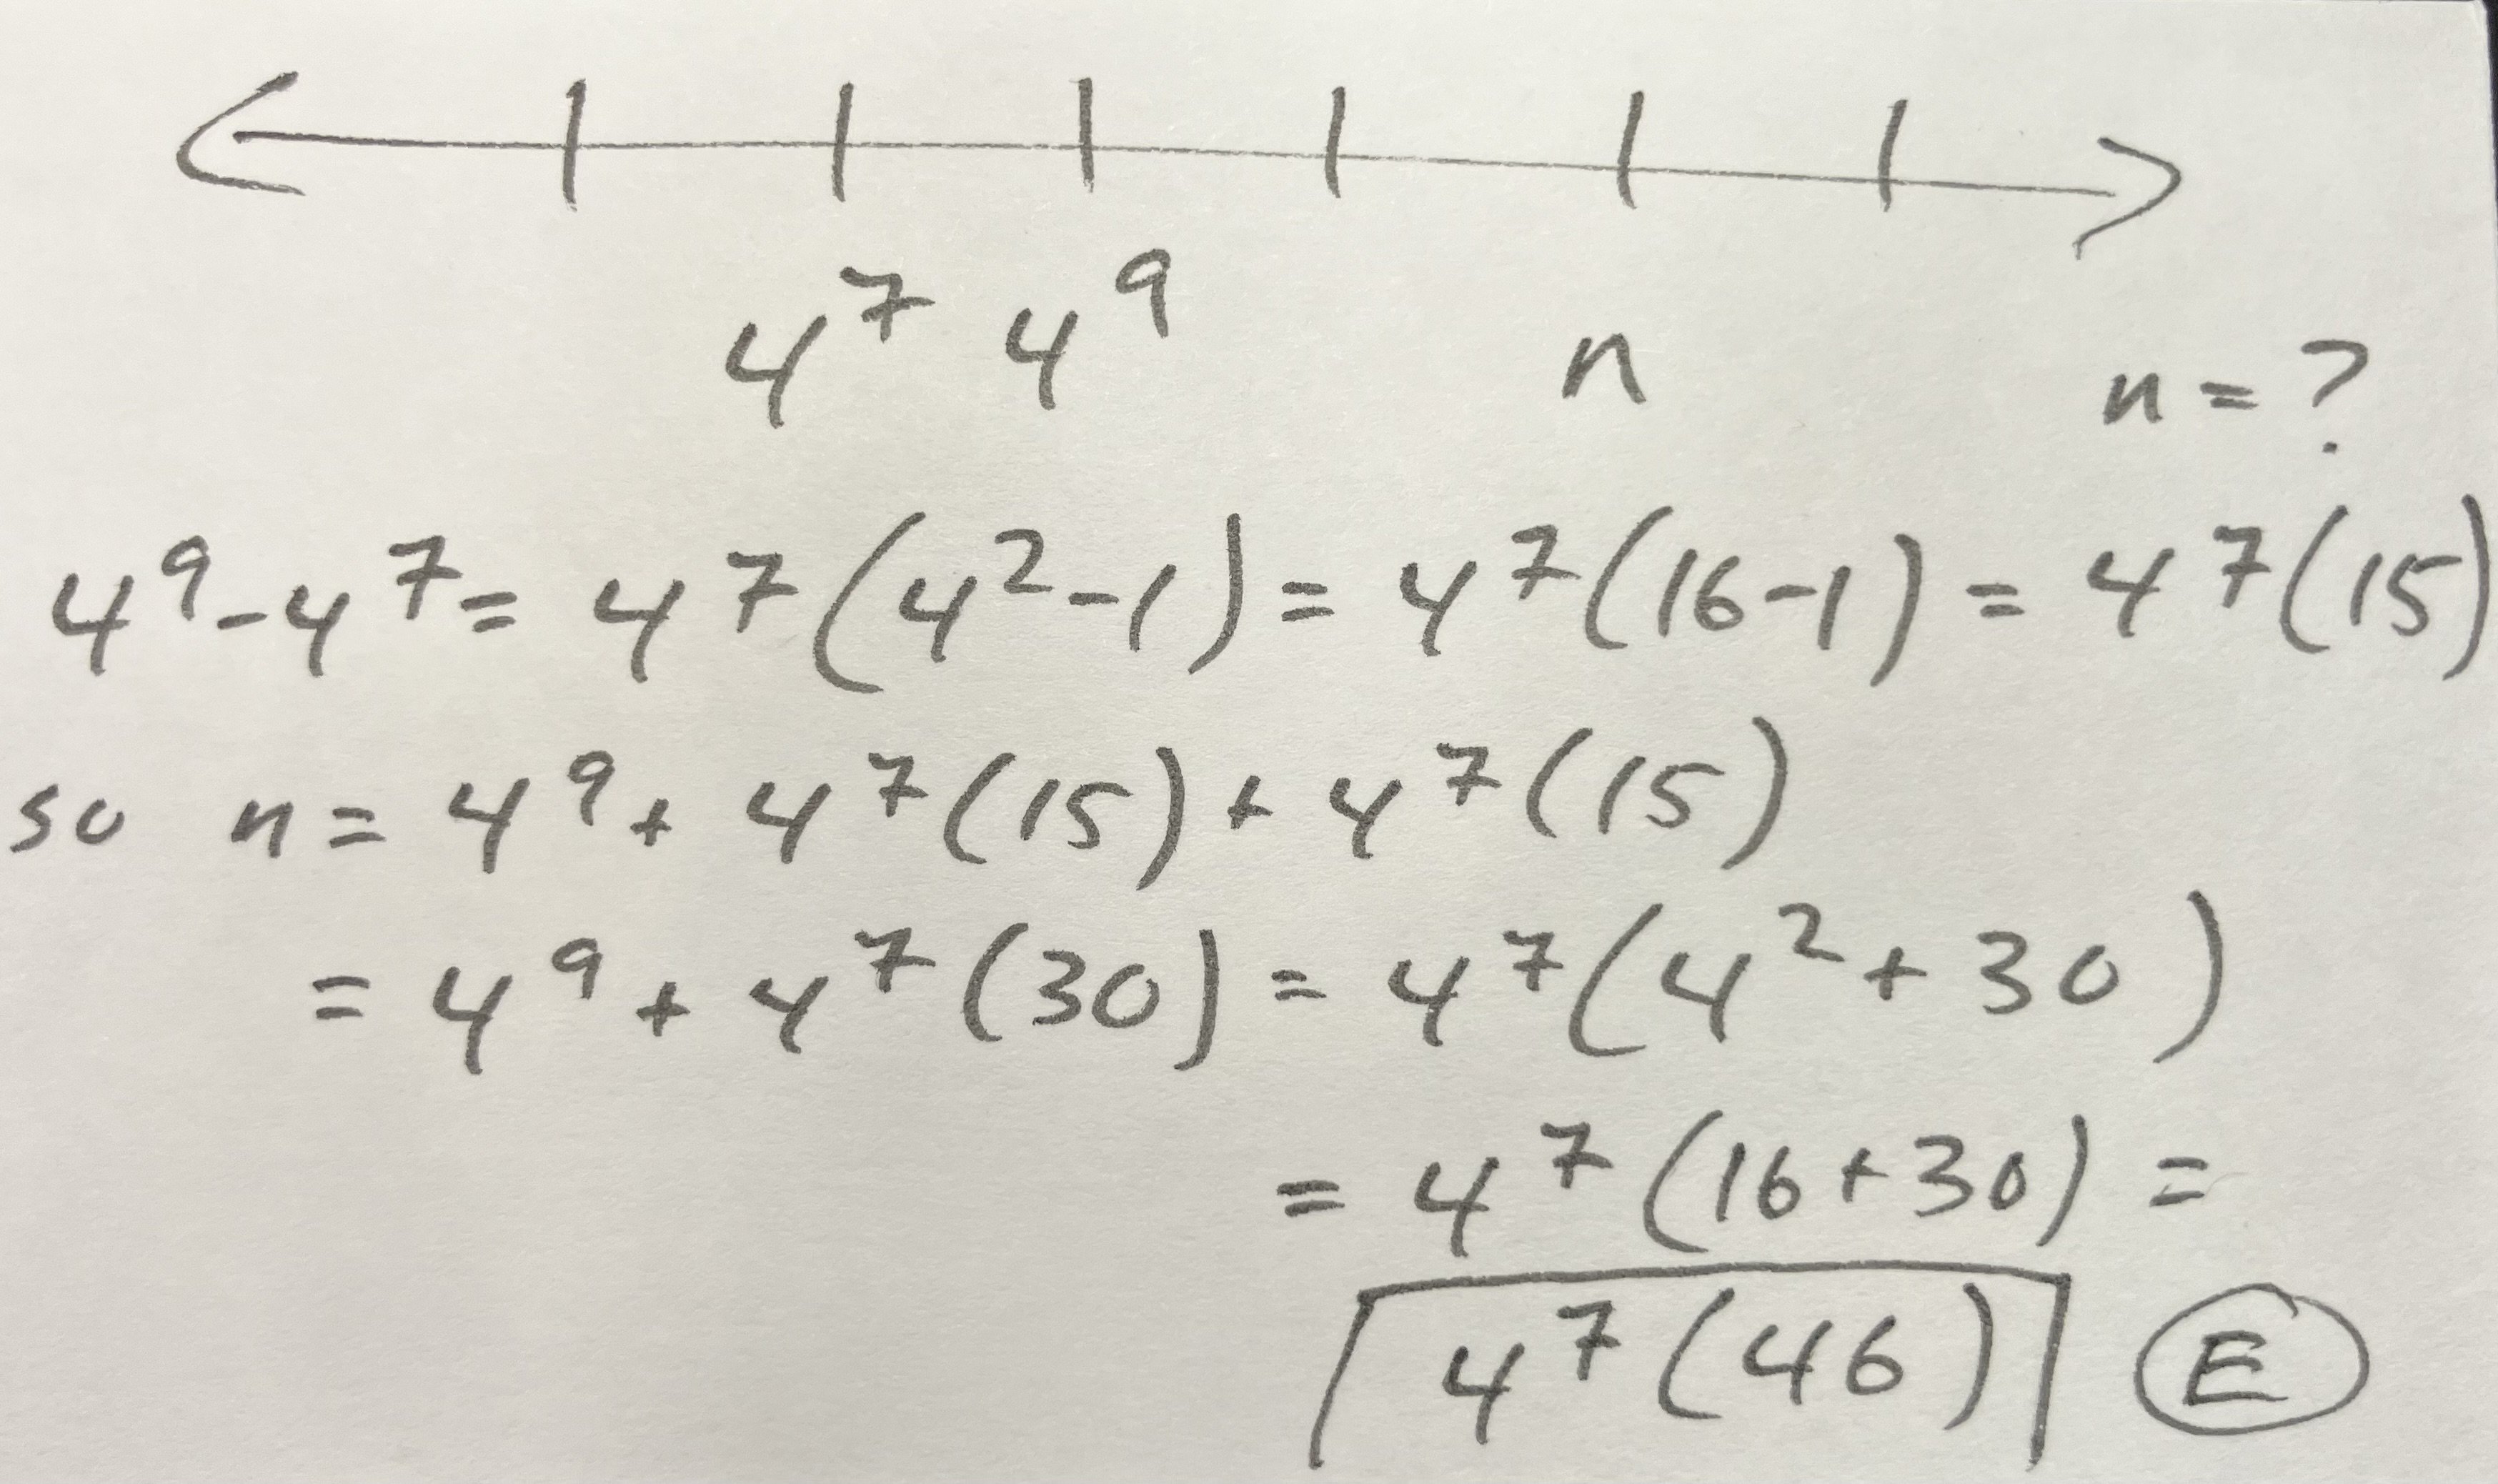 4⁷ 4⁹ n n = ?
4⁹ - 4⁷ = 4⁷(4² - 1) = 4⁷(16 - 1) = 4⁷(15)
so n = 4⁹ + 4⁷(15) + 4⁷(15)
= 4⁹ + 4⁷(30) = 4⁷(4² + 30)
= 4⁷(16 + 30) =
4⁷(46) E